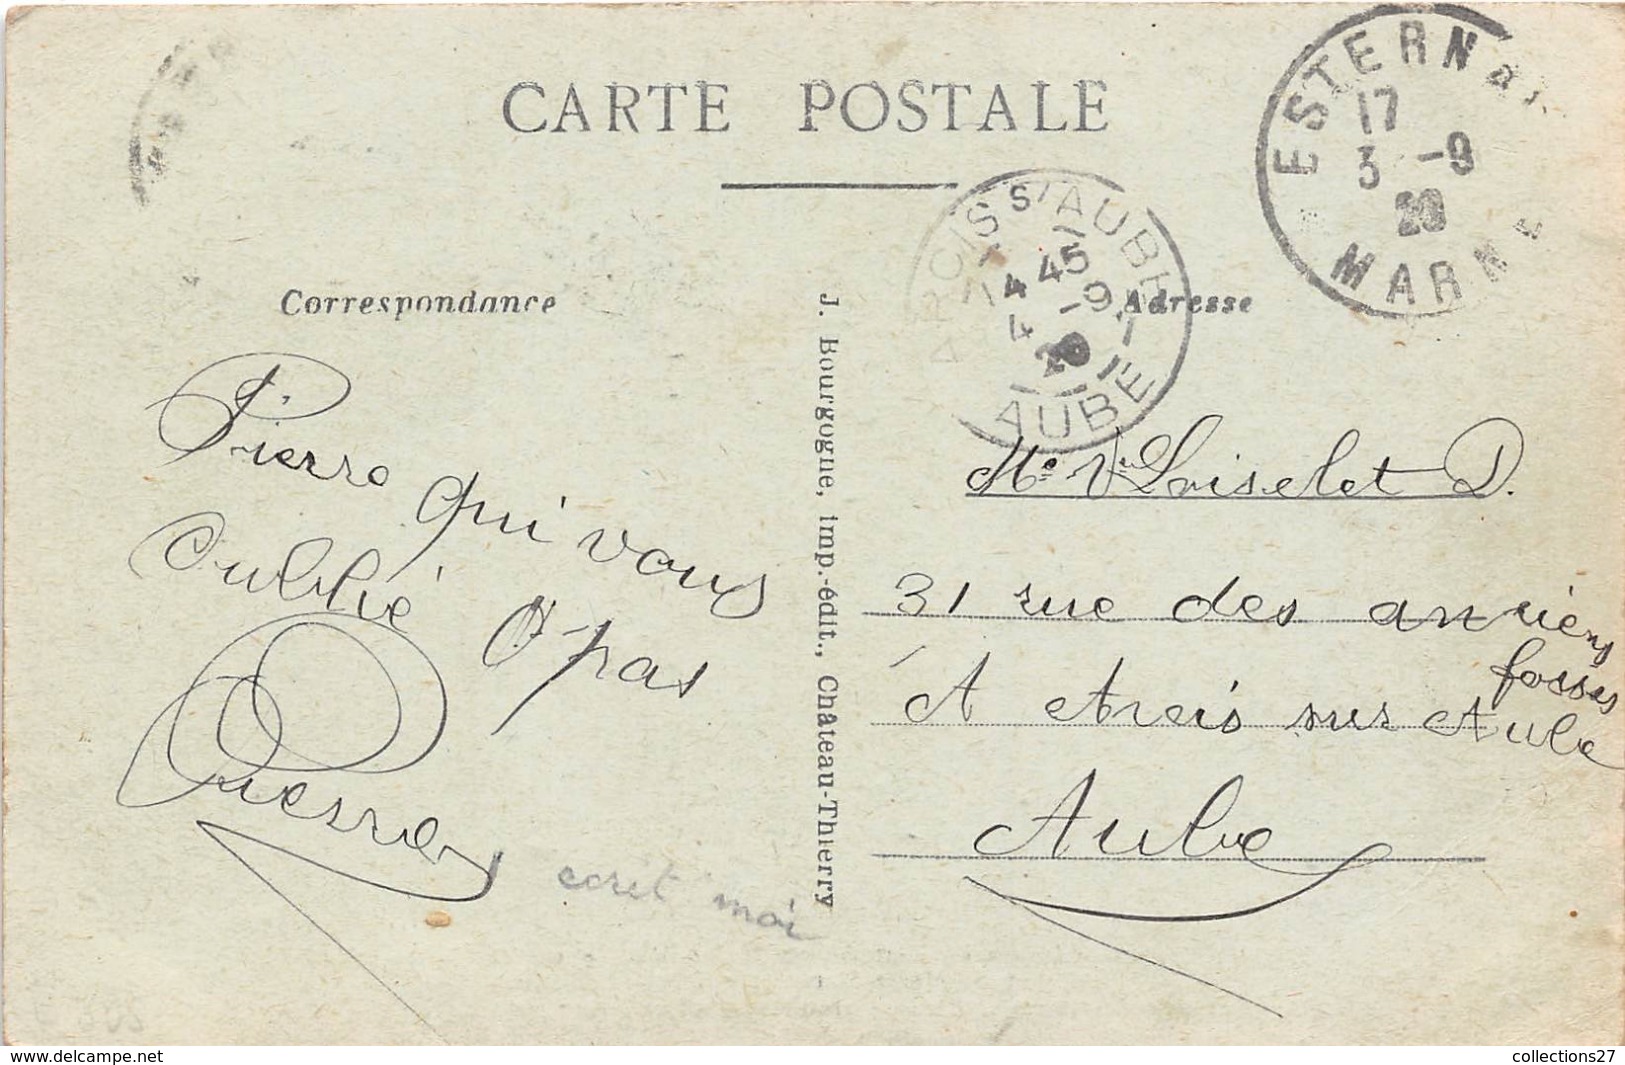 CARTE POSTALE
ESTERNAY
17
3 -9
20
MARNE
ARCIS S/ AUBE
14 45
4 -9
20
AUBE
Correspondance
Adresse
Pierre qui vous
oublie pas
Quesnoy
ecrit moi
J. Bourgogne, imp.-édit., Château-Thierry
Me Vve Loiselet D.
31 rue des anciens
fosses
A Arcis sur Aube
Aube
www.delcampe.net
collections27